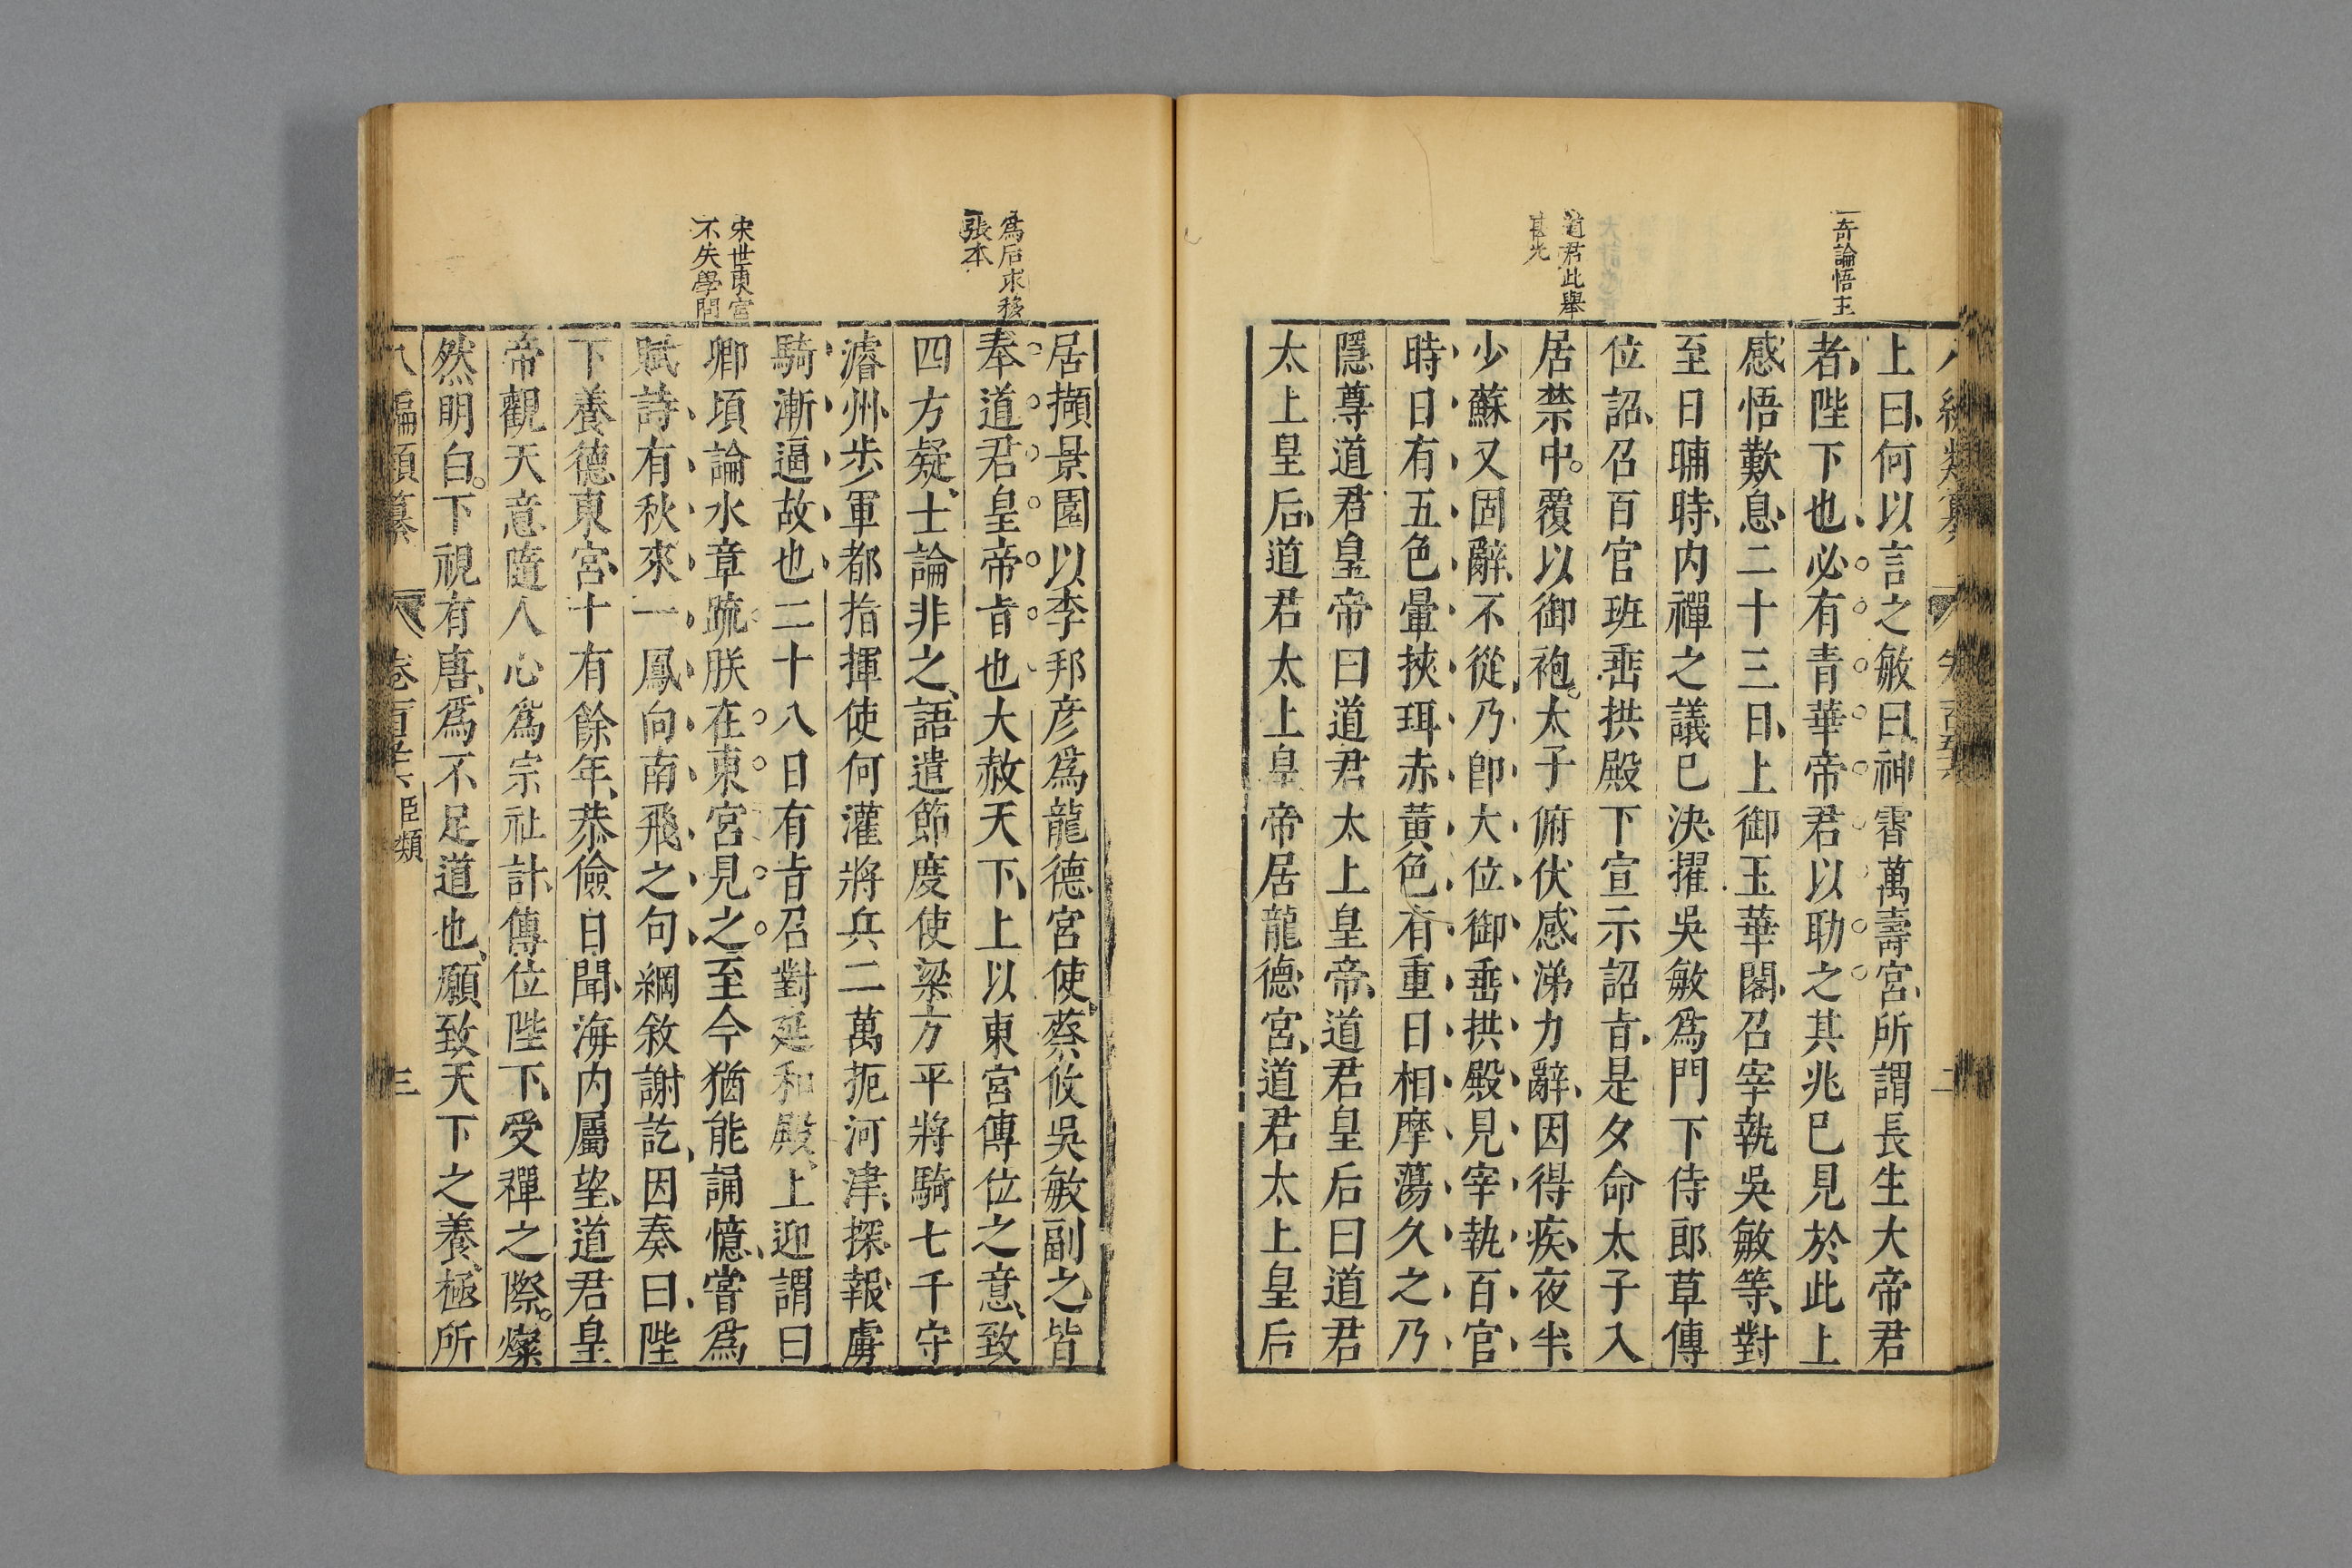 一奇論悟主
道君此舉
甚光
上曰何以言之敏曰神霄萬壽宮所謂長生大帝君
者陛下也必有青華帝君以助之其兆已見於此上
感悟歎息二十三日上御玉華閣召宰執吳敏等對
至日晡時内禪之議已決擢吳敏爲門下侍郎草傳
位詔召百官班垂拱殿下宣示詔旨是夕命太子入
居禁中覆以御袍太子俯伏感涕力辭因得疾夜半
少蘇又固辭不從乃卽大位御垂拱殿見宰執百官
時日有五色暈挾珥赤黃色有重日相摩蕩久之乃
隱尊道君皇帝曰道君太上皇帝道君皇后曰道君
太上皇后道君太上皇帝居龍德宮道君太上皇后
爲后求移
張本
宋世東宮
不失學問
居擷景園以李邦彦爲龍德宮使蔡攸吳敏副之皆
奉道君皇帝旨也大赦天下上以東宮傳位之意致
四方疑士論非之語遣節度使梁方平將騎七千守
濬州步軍都指揮使何灌將兵二萬扼河津探報虜
騎漸逼故也二十八日有旨召對延和殿上迎謂曰
卿頃論水章疏朕在東宮見之至今猶能誦憶嘗爲
賦詩有秋來一鳳向南飛之句綱敘謝訖因奏曰陛
下養德東宮十有餘年恭儉日聞海内屬望道君皇
帝觀天意隨人心爲宗社計傳位陛下受禪之際燦
然明白下視有唐爲不足道也願致天下之養極所
八編類纂 卷百 臣類 三